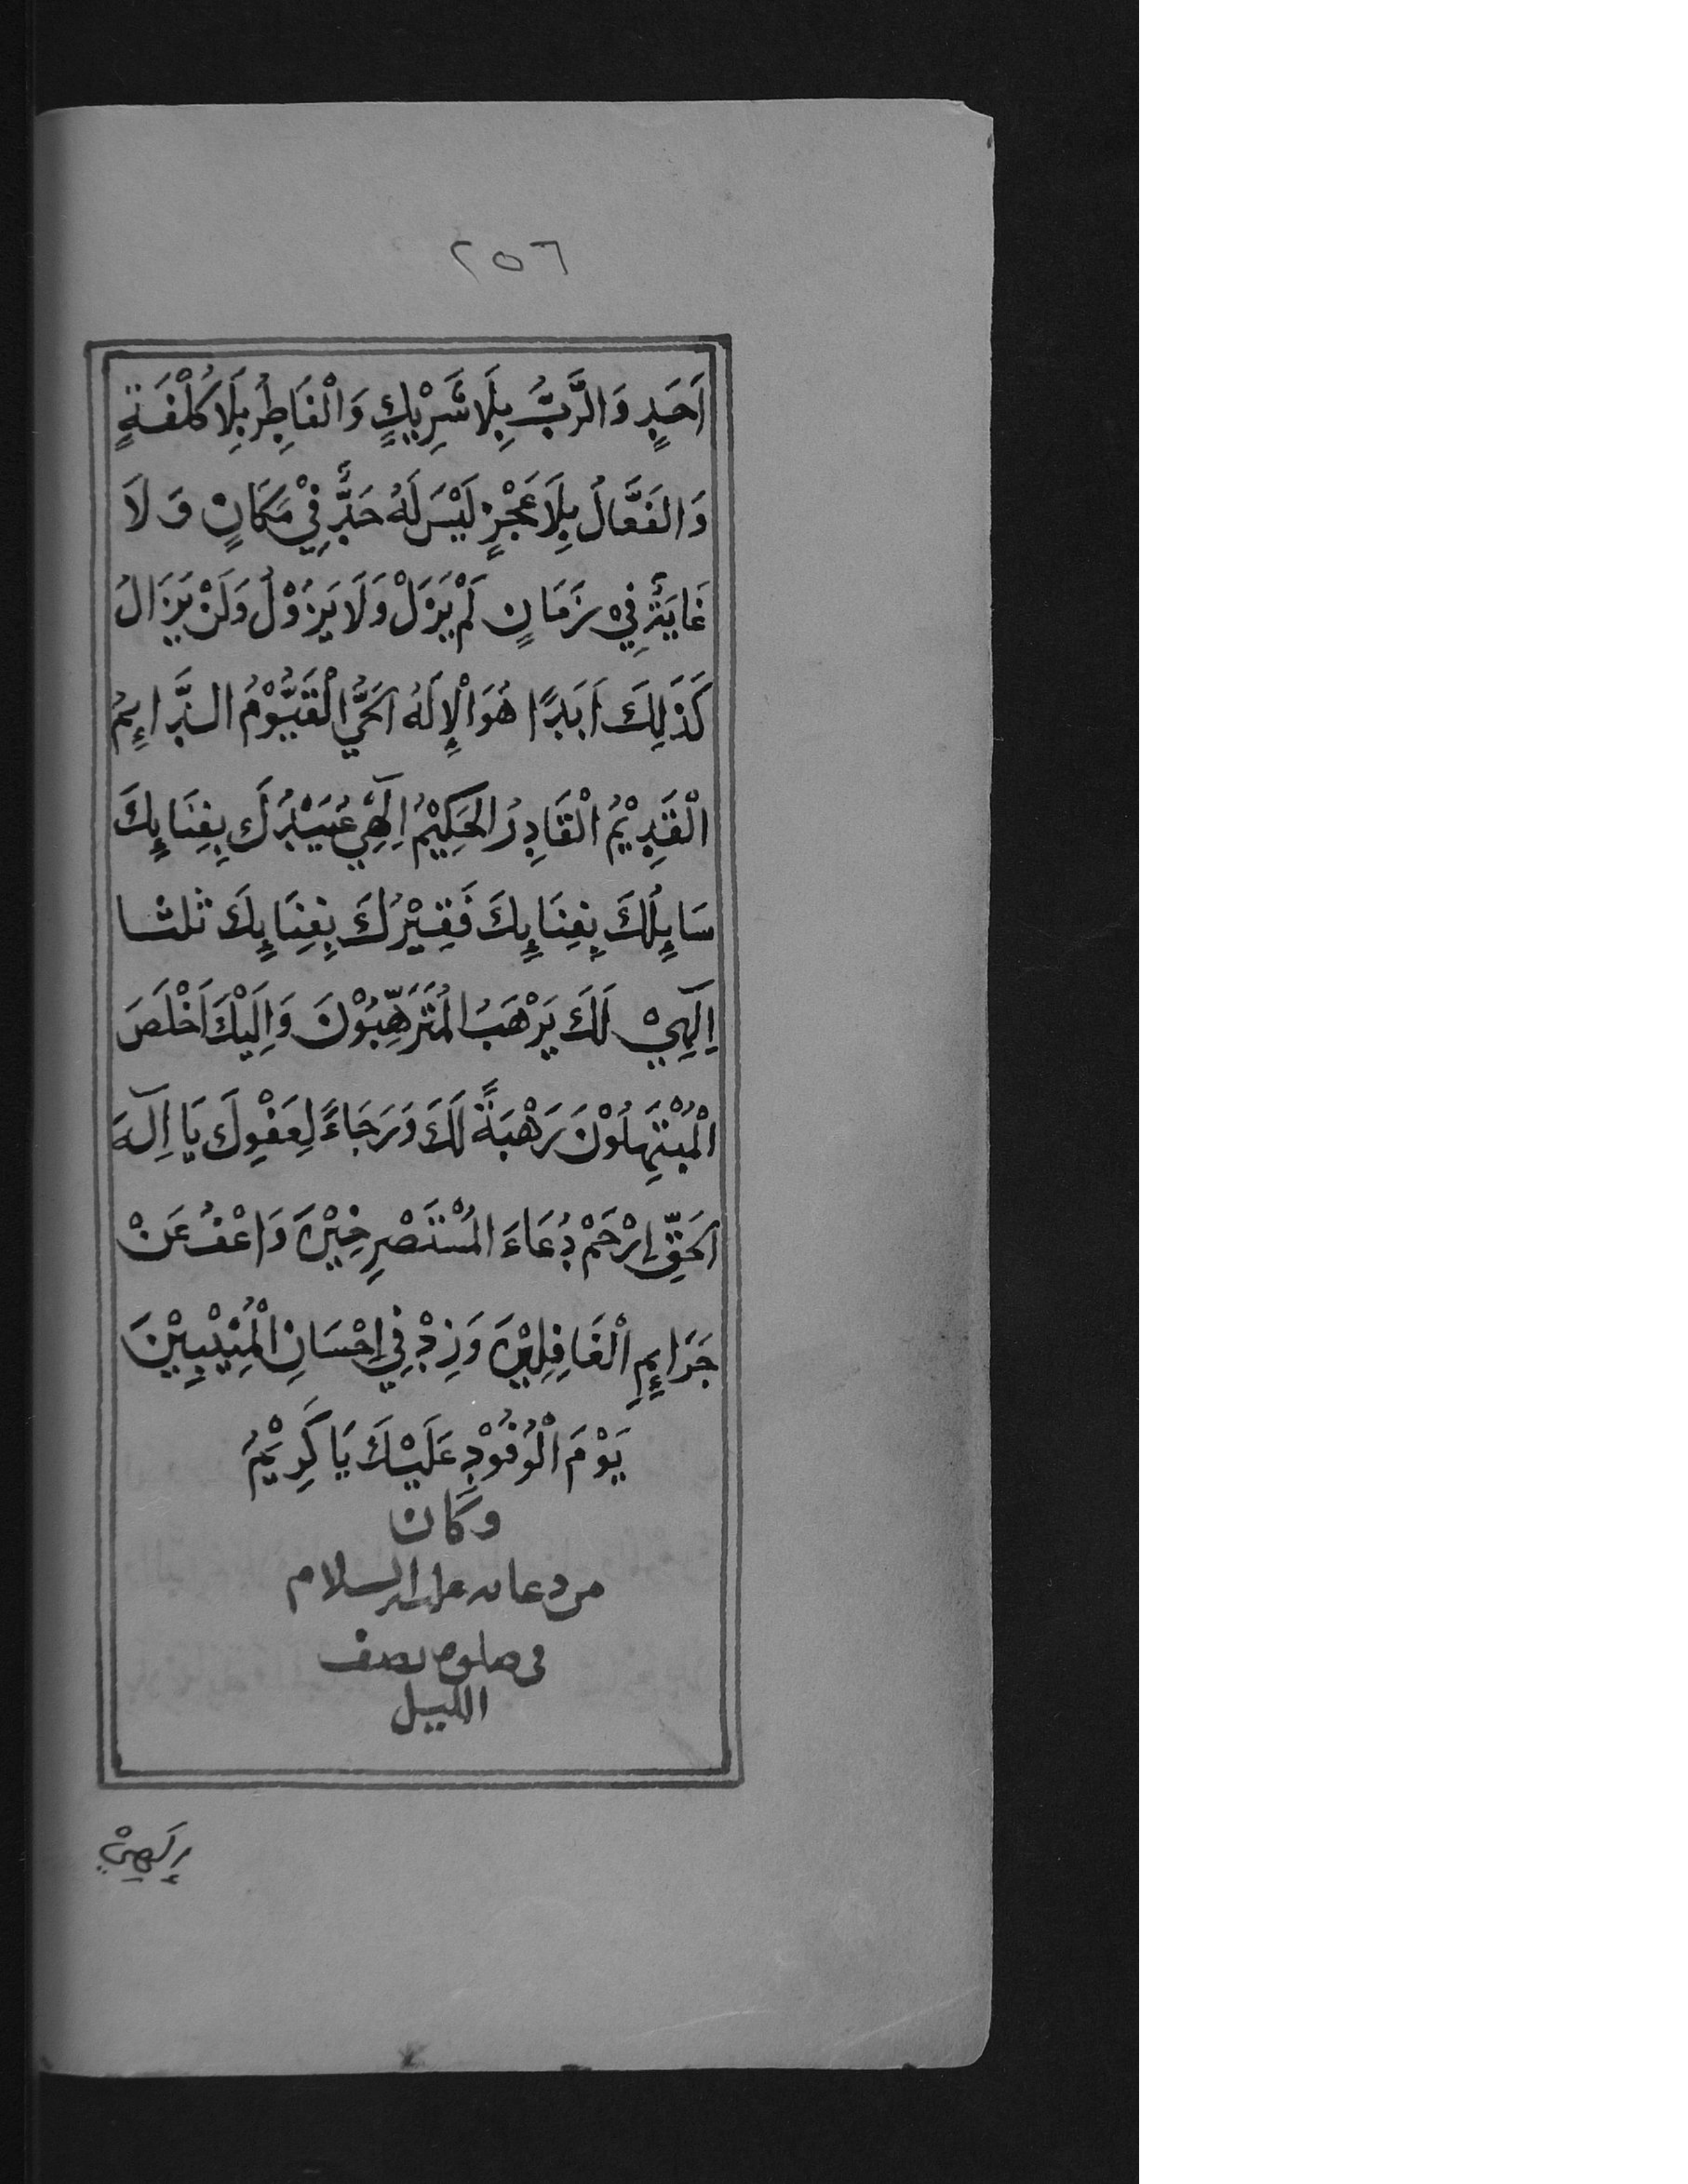 ٢٥٦
اَحَدٍ وَالرَّبُّ بِلَا شَرِيْكٍ وَالْفَاطِرُ بِلَا كُلْفَةٍ
وَالفَعَّالُ بِلَا عَجْزٍ لَيْسَ لَهُ حَدٌّ فِيْ مَكَانٍ وَلَا
غَايَةٌ فِيْ زَمَانٍ لَمْ يَزَلْ وَلَا يَزُوْلُ وَلَنْ يَزَالُ
كَذَلِكَ اَبَدًا هُوَ الْإِلَهُ الحَيُّ الْقَيُّوْمُ الدَّاىِٕمُ
الْقَدِيْمُ الْقَادِرُ الحَكِيْمُ اِلٓهِيْ عُبَيْدُكَ بِفِنَاىِٕكَ
سَاىِٕلُكَ بِفِنَاىِٕكَ فَقِيْرُكَ بِفِنَاىِٕكَ ثلثا
اِلٓهِيْ لَكَ يَرْهَبُ المُتَرَهِّبُوْنَ وَاِلَيْكَ اَخْلَصَ
الْمُبْتَهِلُوْنَ رَهْبَةً لَكَ وَرَجَاءً لِعَفْوِكَ يَا اِلٓهَ
الحَقِّ اِرْحَمْ دُعَاءَ المُسْتَصْرِخِيْنَ وَاعْفُ عَنْ
جَرَاىِٕمِ الْغَافِلِيْنَ وَزِدْ فِيْ اِحْسَانِ الْمُنِيْبِيْنَ
يَوْمَ الْوُفُوْدِ عَلَيْكَ يَا كَرِيْمُ
وكان
من دعائه عليه السلام
في صلوة نصف
الليل
إِلَهِيْ